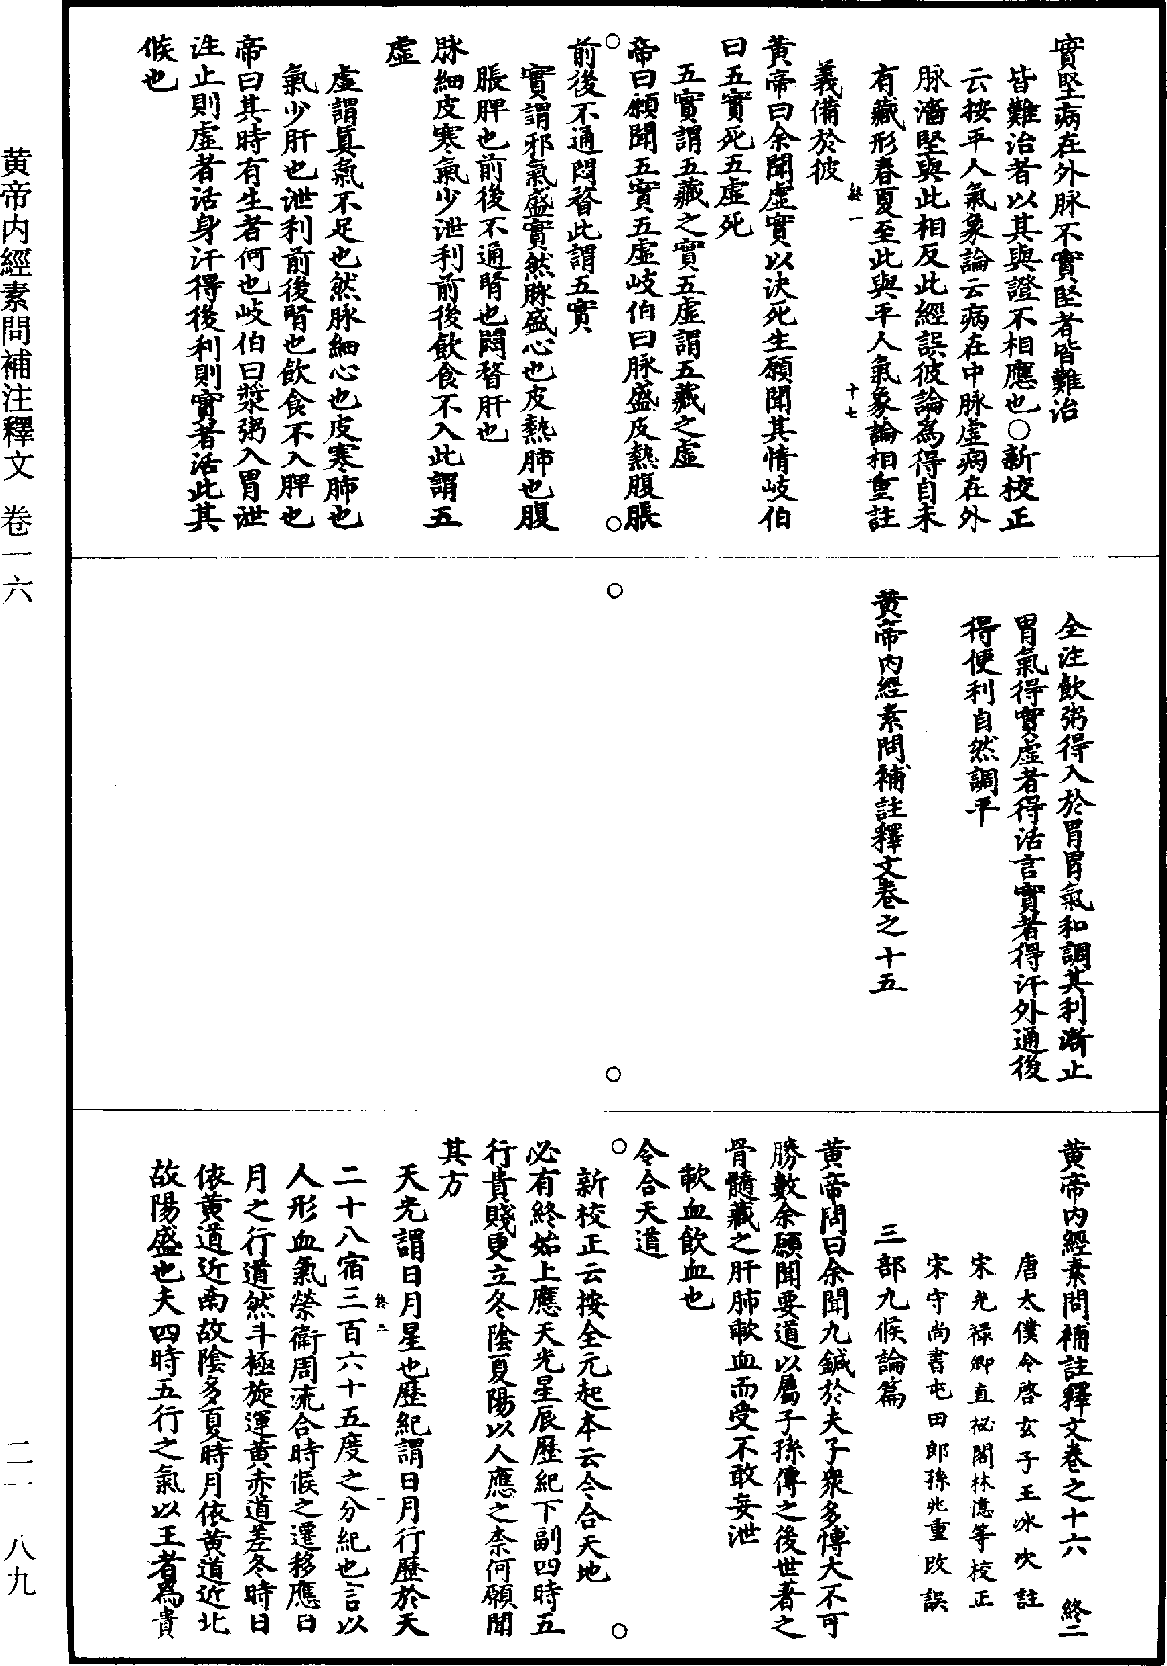 實堅病在外脉不實堅者皆難治
皆難治者以其與證不相應也○新校正
云按平人氣象論云病在中脉虛病在外
脉濇堅與此相反此經誤彼論為得自未
有藏形春夏至此與平人氣象論相重註
義備於彼
終一
十七
黃帝曰余聞虛實以決死生願聞其情岐伯
曰五實死五虛死
五實謂五藏之實五虛謂五藏之虛
帝曰願聞五實五虛岐伯曰脉盛皮熱腹脹
前後不通悶瞀此謂五實
實謂邪氣盛實然脉盛心也皮熱肺也腹
脹脾也前後不通腎也悶瞀肝也
脉細皮寒氣少泄利前後飲食不入此謂五
虛
虛謂真氣不足也然脉細心也皮寒肺也
氣少肝也泄利前後腎也飲食不入脾也
帝曰其時有生者何也岐伯曰漿粥入胃泄
注止則虛者活身汗得後利則實者活此其
候也
全注飲粥得入於胃胃氣和調其利漸止
胃氣得實虛者得活言實者得汗外通後
得便利自然調平
黃帝內經素問補註釋文卷之十五
黃帝內經素問補註釋文卷之十六 終二
唐太僕令啓玄子王冰次註
宋光祿卿直祕閣林億等校正
宋守尚書屯田郎孫兆重改誤
三部九候論篇
黃帝問曰余聞九鍼於夫子衆多博大不可
勝數余願聞要道以屬子孫傳之後世著之
骨髓藏之肝肺歃血而受不敢妄泄
歃血飲血也
令合天道
新校正云按全元起本云令合天地
必有終始上應天光星辰歷紀下副四時五
行貴賤更立冬陰夏陽以人應之柰何願聞
其方
天光謂日月星也歷紀謂日月行歷於天
二十八宿三百六十五度之分紀也言以
終二
一
人形血氣榮衛周流合時候之遷移應日
月之行道然斗極旋運黃赤道差冬時日
依黃道近南故陰多夏時月依黃道近北
故陽盛也夫四時五行之氣以王者為貴
黄帝内經素問補注釋文 卷一六
二一 八九